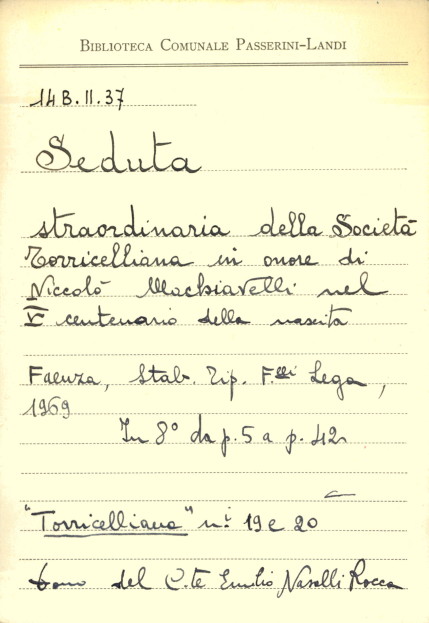 BIBLIOTECA COMUNALE PASSERINI-LANDI
14B.II.37
Seduta
straordinaria della Società
Torricelliana in onore di
Niccolò Machiavelli nel
V centenario della nascita
Faenza, Stab. Tip. F.lli Lega,
1969
In 8° da p. 5 a p. 42
"Torricelliana" n.i 19 e 20
Dono del C.te Emilio Nasalli Rocca